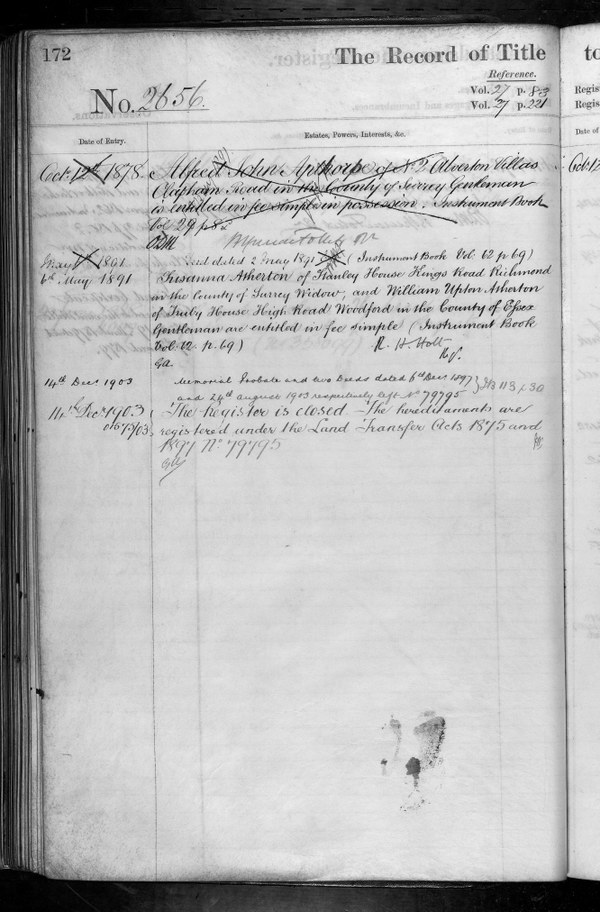 172
The Record of Title
Reference.
No. 2656.
Vol. 27 p. 83
Vol. 27 p. 221
Date of Entry.
Estates, Powers, Interests, &c.
Oct. 12th 1878. Alfred John Apthorpe of No 2 Alverton Villas
Clapham Road in the County of Surrey Gentleman
is entitled in fee simple in possession. Instrument Book
Vol 29 p 82
Deed dated 2 May 1891 (Instrument Book Vol. 62 p 69)
6th May 1891 Susanna Atherton of Stanley House Kings Road Richmond
in the County of Surrey Widow, and William Upton Atherton
of Truby House High Road Woodford in the County of Essex
Gentleman are entitled in fee simple (Instrument Book
Vol. 62 p. 69)
R. H. Holt
Regr.
14th Decr 1903 Memorial Probate and two Deeds dated 6th Decr 1897
and 24th August 1903 respectively No 79795
14th Decr 1903 The Register is closed - The hereditaments are
registered under the Land Transfer Acts 1875 and
1897 No 79795
to
Regist
Regist
Date of
Oct. 12